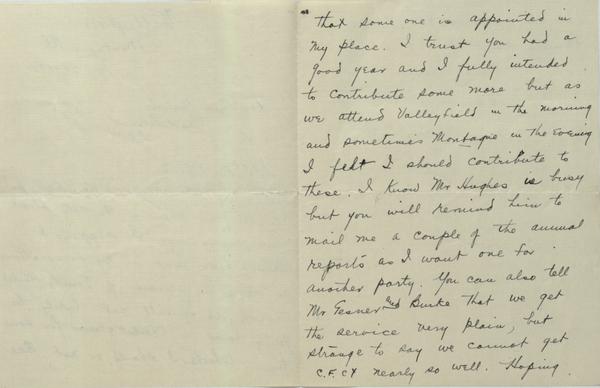 that some one is appointed in
my place. I trust you had a
good year and I fully intended
to contribute some more but as
we attend Valleyfield in the morning
and sometimes Montague in the Evening
I felt I should contribute to
these. I Know Mr Hughes is busy
but you will remind him to
mail me a couple of the annual
reports as I want one for
another party. You can also tell
Mr Gesner and Burke that we get
the service very plain, but
strange to say we cannot get
C.F.CY nearly so well. Hoping